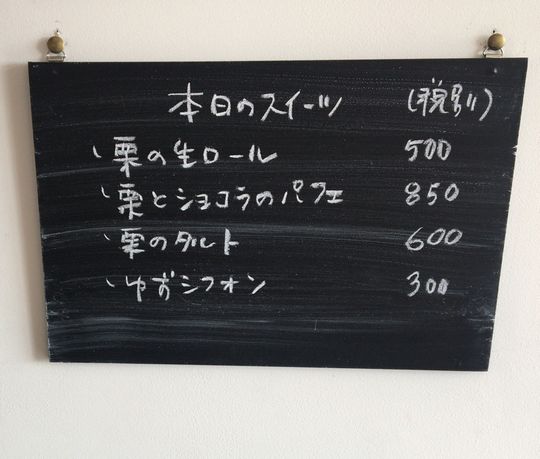 本日のスイーツ (税別)
、栗の生ロール 500
、栗とショコラのパフェ 850
、栗のタルト 600
、ゆずシフォン 300